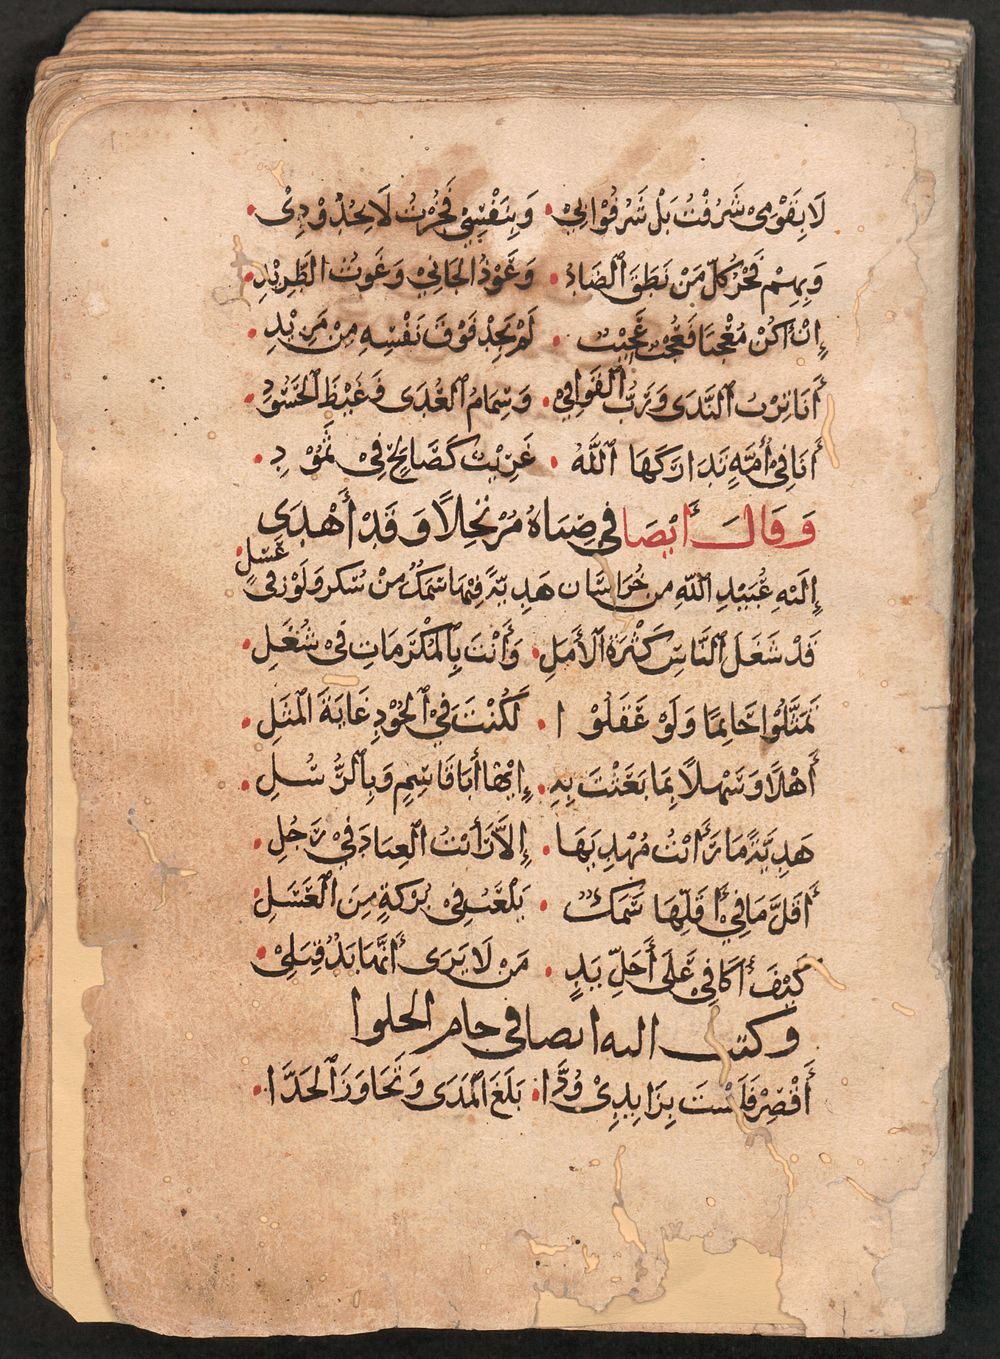 لَا بِقَوْمِى شَرُفْتُ بَلْ شَرُفُوا بِي • وَبِنَفْسِي فَخَرْتُ لَا بِجُدُوْدِى •
وَبِهِمْ فَخْرُ كُلِّ مَنْ نَطَقَ ٱلضَّادَ • وَعَوْذُ الجَانِي وَغَوثُ الطَّرِيْدِ •
إِنْ أَكُنْ مُعْجَبًا فَعُجْبُ عَجِيْبٍ • لَمْ يَجِدْ فَوْقَ نَفْسِهِ مِنْ مَزِيْدِ •
أَنَا تِرْبُ ٱلنَّدَى وَرَبُّ ٱلقَوَافِي • وَسِمَامُ ٱلعُدَى وَغَيْظُ الحَسُوْدِ •
أَنَا فِي أُمَّةٍ تَدَارَكَهَا ٱللَّهُ • غَرِيْبٌ كَصَالِحٍ فِي ثَمُوْدِ •
وَقَالَ أَيْضًا فِي صِبَاهُ مُرْتَجِلًا وَقَدْ أَهْدَى
إِلَيْهِ عُبَيْدُ اللَّهِ مِن خُرَاسَان هَدِيَّةً فِيْهَا سَمَكٌ مِنْ سُكَرٍ وَلَوْزٍ فِى عَسَلٍ •
قَدْ شَغَلَ ٱلنَّاسَ كَثْرَةُ ٱلأَمَلِ • وَأَنْتَ بِٱلمَكْرُمَاتِ فِى شُغُلِ •
تَمَثَّلُوا حَاتِمًا وَلَوْ عَقَلُوْا • لَكُنْتَ فِي ٱلجُوْدِ غَايَةَ المَثَلِ •
أَهْلًا وَسَهْلًا بِمَا بَعَثْتَ بِهِ • إِيْهًا أَبَا قَاسِمٍ وَبِالرُّسُلِ •
هَدِيَّةً مَا رَأَيْتُ مُهْدِيَهَا • إِلَّا رَأَيْتُ العِبَادَ فِي رَجُلِ •
أَقَلُّ مَا فِي أَقَلِّهَا سَمَكٌ • يَلْعَبُ فِى بُرْكَةٍ مِنَ العَسَلِ •
كَيْفَ أُكَافِي عَلَى أَجَلِّ يَدٍ • مَنْ لَا يَرَى أَنَّهَا يَدٌ قِبَلِي •
وكتب اليه ايضا فى جام الحلوا
أَقْصِرْ فَلَسْتَ بِزَايِدِى وُدَّا • بَلَغَ المَدَى وَتَجَاوَزَ ٱلحَدَّا •